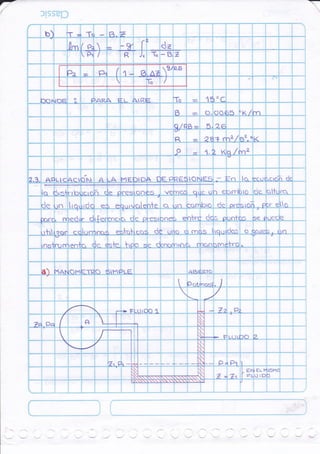 Classic
b) T = To - B.Z
ln(P2/P1) = -g/R ∫ dz/(To-BZ)
P2 = P1 (1 - BΔZ/To)^g/RB
DONDE : PARA EL AIRE To = 15°C
B = 0.0065 °K/m
g/RB = 5.26
R = 287 m²/s².°K
ρ = 1.2 Kg/m³
2.3. APLICACIÓN A LA MEDIDA DE PRESIONES.- En la ecuación de
la distribución de presiones, vemos que un cambio de altura
de un líquido es equivalente a un cambio de presión, por ello
para medir diferencia de presiones entre dos puntos se puede
utilizar columnas estáticas de uno o mas líquidos o gases, un
instrumento de este tipo se denomina manometro.
a) MANOMETRO SIMPLE ABIERTO
Patmosf.
FLUIDO 1
Z2, P2
Za, Pa
A
FLUIDO 2
Z1, P1
P = P1
Z = Z1
EN EL MISMO
FLUIDO